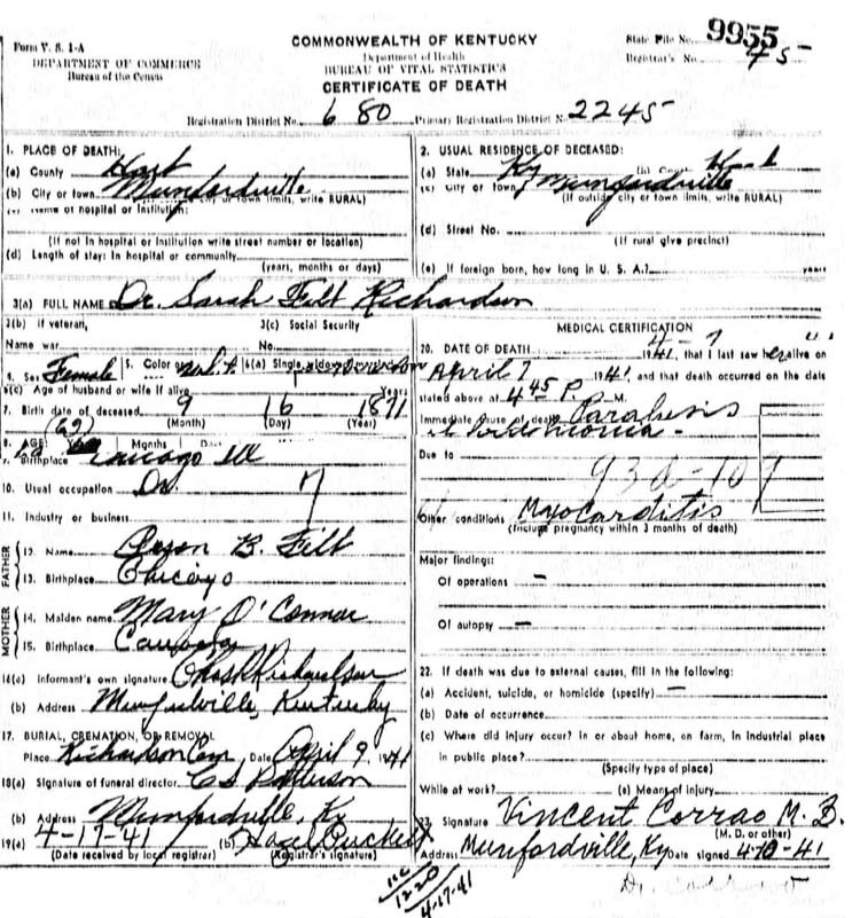 Form V. S. 1-A
DEPARTMENT OF COMMERCE
Bureau of the Census
COMMONWEALTH OF KENTUCKY
Department of Health
BUREAU OF VITAL STATISTICS
CERTIFICATE OF DEATH
State File No. 9955
Registrar's No.
Registration District No. 680 Primary Registration District No. 2245
1. PLACE OF DEATH:
(a) County Hart
(b) City or town Munfordville
(If outside city or town limits, write RURAL)
(c) Name of hospital or Institution:
(If not in hospital or Institution write street number or location)
(d) Length of stay: In hospital or community
(years, months or days)
2. USUAL RESIDENCE OF DECEASED:
(a) State Ky (b) County Hart
(c) City or town Munfordville
(If outside city or town limits, write RURAL)
(d) Street No.
(If rural give precinct)
(e) If foreign born, how long in U. S. A.? years
3(a) FULL NAME Dr. Sarah Filt Richardson
3(b) If veteran,
Name war
3(c) Social Security
No.
4. Sex Female 5. Color or 6(a) Single, widowed
6(c) Age of husband or wife if alive Years
7. Birth date of deceased 9 16 1871
(Month) (Day) (Year)
8. AGE: Years Months Days
(69)
69
9. Birthplace Chicago Ill
10. Usual occupation Dr.
11. Industry or business
FATHER
12. Name B. Filt
13. Birthplace Chicago
MOTHER
14. Maiden name Mary O'Connor
15. Birthplace
16(a) Informant's own signature Richardson
(b) Address Munfordville, Kentucky
17. BURIAL, CREMATION, OR REMOVAL
Place Richardson Cem Date April 9, 1941
18(a) Signature of funeral director C S Patterson
(b) Address Munfordville, Ky
19(a) 4-17-41 (b) Hazel Puckett
(Date received by local registrar) (Registrar's signature)
MEDICAL CERTIFICATION
20. DATE OF DEATH 4-7 1941, that I last saw her alive on
April 7 1941, and that death occurred on the date
stated above at 4 45 P. M.
Immediate cause of death Paralysis
Due to
93d-109
Other conditions Myocarditis
(Include pregnancy within 3 months of death)
Major findings:
Of operations —
Of autopsy —
22. If death was due to external causes, fill in the following:
(a) Accident, suicide, or homicide (specify) —
(b) Date of occurrence
(c) Where did injury occur? In or about home, on farm, in industrial place
in public place?
(Specify type of place)
While at work? (e) Means of injury
23. Signature Vincent Corrao M. D.
(M. D. or other)
Address Munfordville, Ky Date signed 4-10-41
12-20
4-17-41